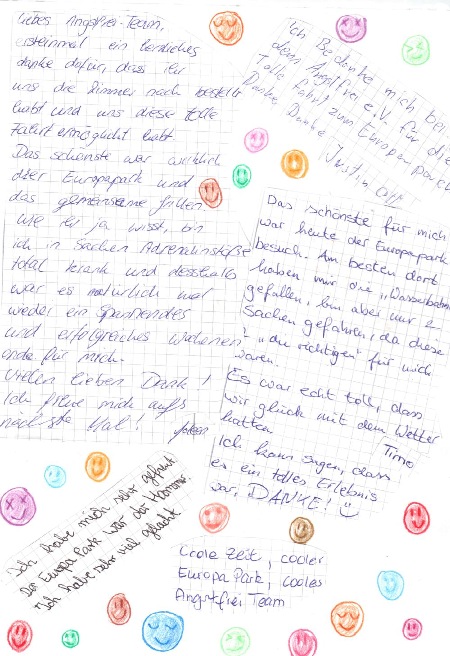 liebes Angsfrei-Team,
ersteinmal ein herzliches
danke dafür, dass ihr
uns die Zimmer noch bestellt
habt und uns diese tolle
Fahrt ermöglicht habt.
Das schönste war wirklich
der Europapark und
das gemeinsame grillen.
Wie ihr ja wisst, bin
ich in Sachen Adrenalinstöße
total krank und desshalb
war es natürlich mal
wieder ein spannendes
und erfolgreiches wochenen
ende für mich.
Vielen lieben Dank!
Ich freue mich aufs
nächste Mal!
Ich Bedanke mich bei
dem Angstfrei e.V. für die
Tolle Fahrt zum Europa parck
Danke Danke
Justin
Das schönste für mich
war heute der Europapark
besuch. Am besten dort
haben mir die „Wasserbahnen
gefallen, bin aber nur 2
Sachen gefahren, da diese
2 „die richtigen" für mich
waren.
Es war echt toll, dass
wir glück mit dem Wetter
hatten.
Ich kann sagen, dass
es ein tolles Erlebnis
war, DANKE!
Timo
Ich habe mich sehr gefreut
Der Europa Park war der Hammer.
Ich habe sehr viel gelacht
Coole Zeit, cooler
Europa Park, cooles
Angstfrei Team